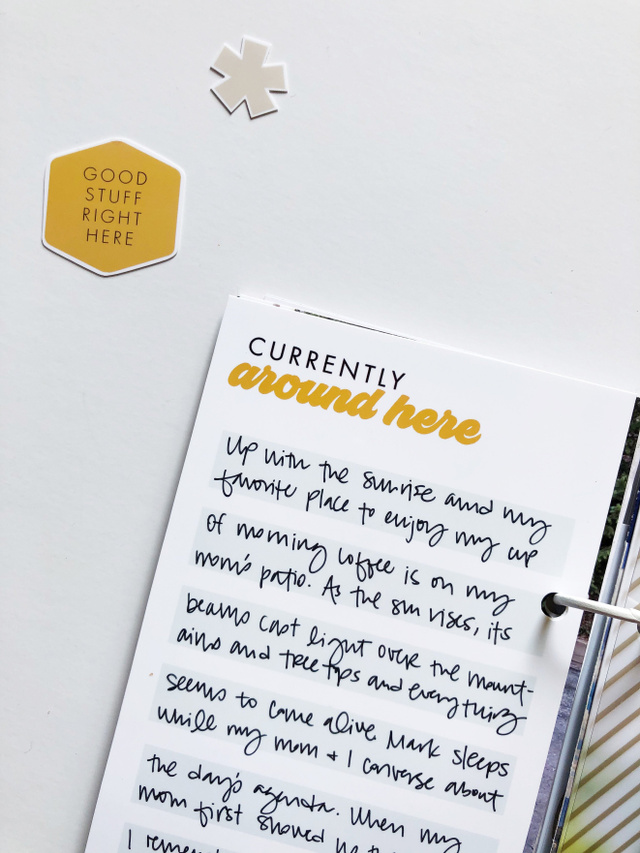 GOOD
STUFF
RIGHT
HERE
CURRENTLY
around here
Up with the sunrise and my
favorite place to enjoy my cup
of morning coffee is on my
mom's patio. As the sun rises, its
beams cast light over the mount-
ains and treetops and everything
seems to come alive. Mark sleeps
while my mom + I converse about
the day's agenda. When my
mom first showed
I